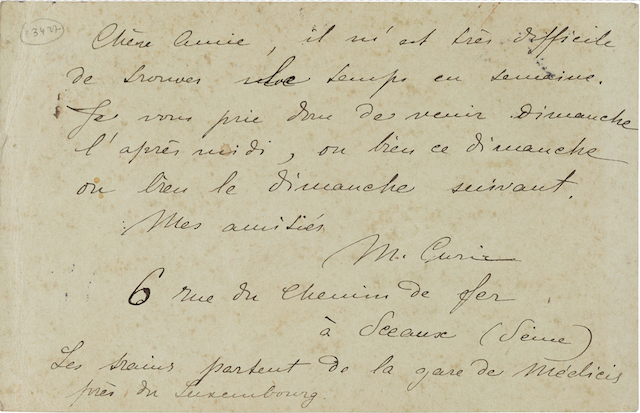 13427
Chère Amie, il m'est très difficile
de trouver le temps en semaine.
Je vous prie donc de venir dimanche
l'après midi, ou bien ce dimanche
ou bien le dimanche suivant.
Mes amitiés
M. Curie
6 rue du Chemin de fer
à Sceaux (Seine)
Les trains partent de la gare de Médicis
près du Luxembourg